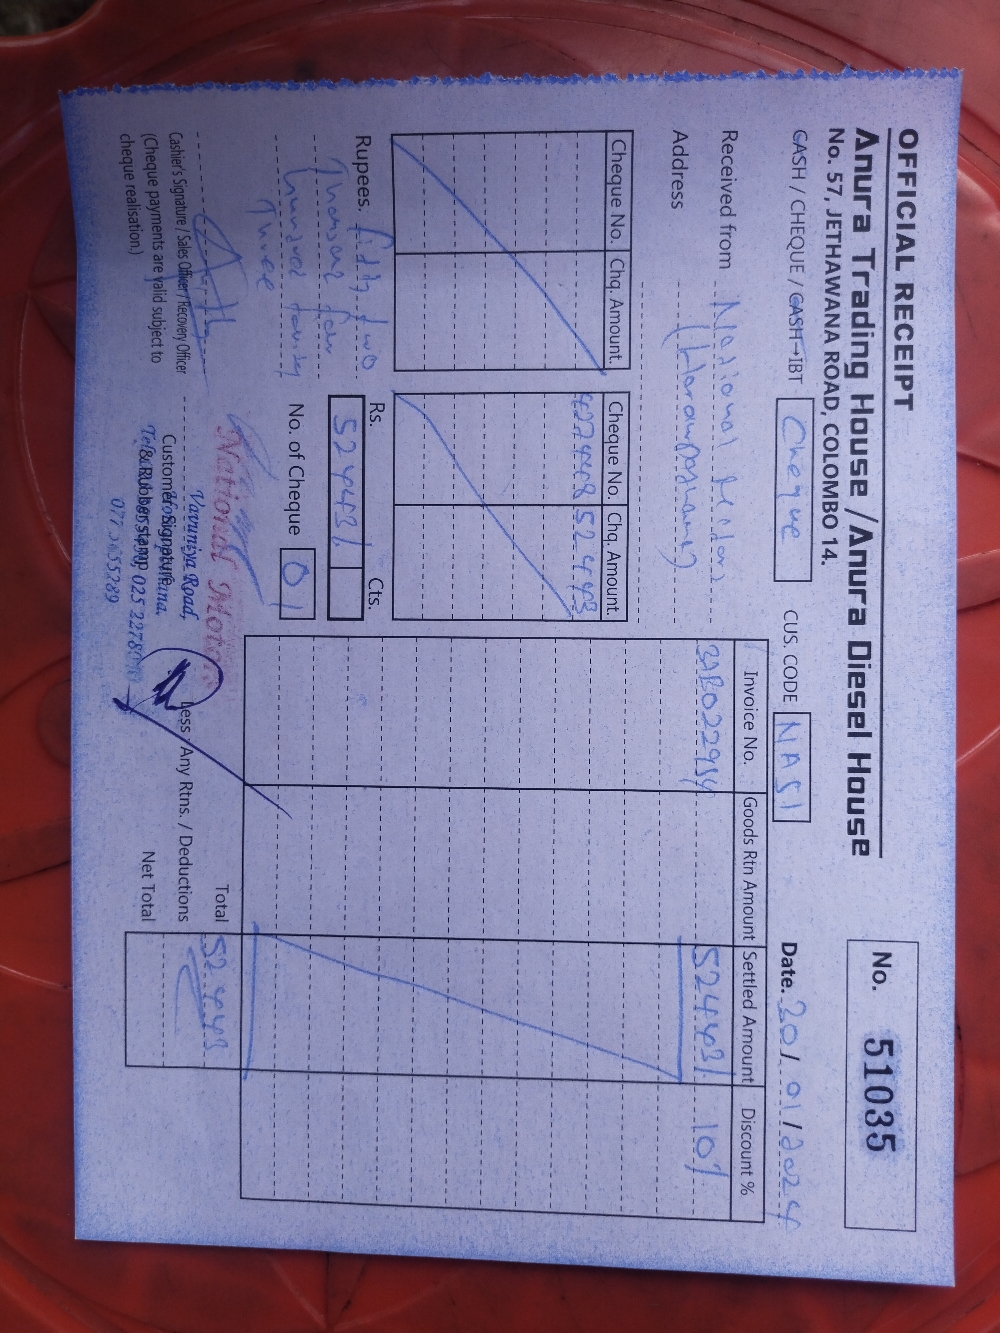 OFFICIAL RECEIPT
Anura Trading House / Anura Diesel House
No. 57, JETHAWANA ROAD, COLOMBO 14.
No. 51035
CASH / CHEQUE / CASH-IBT Cheque CUS. CODE NAS1 Date. 20/01/2024
Received from National Motors
Address
Cheque No. Chq. Amount.
Cheque No. Chq. Amount.
427448 52443
Invoice No. Goods Rtn Amount Settled Amount Discount %
52443/ 10%
Rupees. fifty two
Thousand four
hundred fourty
Three
Rs. Cts.
52443/
No. of Cheque 01
Total 52443
Less : Any Rtns. / Deductions
Net Total
Cashier's Signature / Sales Officer / Recovery Officer
(Cheque payments are valid subject to
cheque realisation.)
Customer Signature
& Rubber stamp
National Motors
Vavuniya Road,